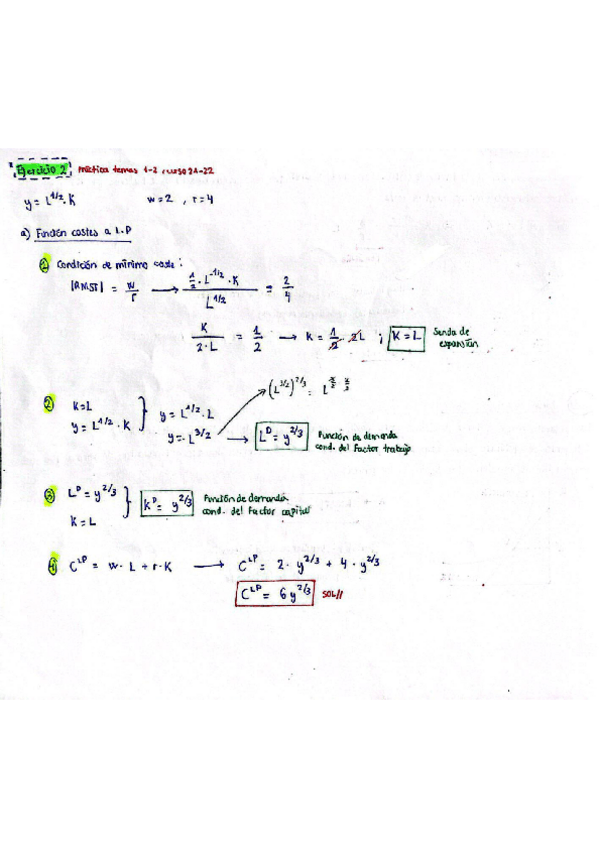 "Ejercicio 2" Práctica temas 1-2, curso 21-22
y = L^1/2 · K w=2 , r=4
a) Función costes a L.P
① Condición de mínimo coste:
|RMST| = w/r → (1/2 · L^-1/2 · K) / L^1/2 = 2/4
K / 2·L = 1/2 → K = 1/2 · 2L ; K=L Senda de expansión
(L^3/2)^2/3 = L^(3/2 · 2/3)
② K=L
y = L^1/2 · K } y = L^1/2 · L
y = L^3/2 → L^D = y^2/3 Función de demanda cond. del factor trabajo
③ L^D = y^2/3
K = L } K^D = y^2/3 Función de demanda cond. del factor capital
④ C^LP = w · L + r · K → C^LP = 2 · y^2/3 + 4 · y^2/3
C^LP = 6y^2/3 SOL//